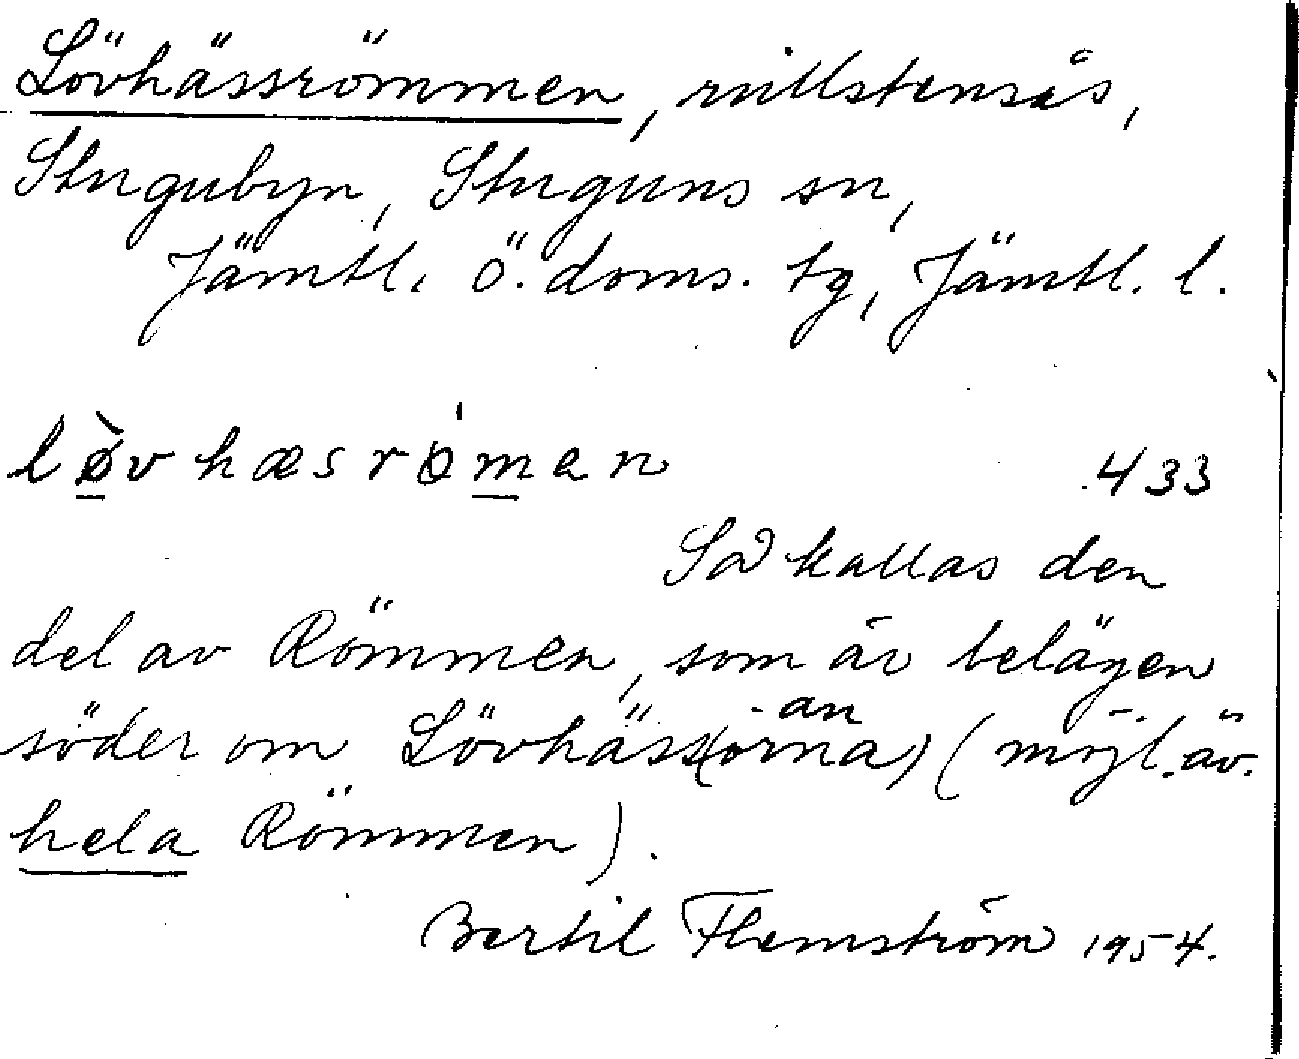 Lövhässrömmen, rullstensås,
Stugubyn, Stuguns sn,
Jämtl. ö. doms. tg, Jämtl. l.
lø̀vhæsrömen 433
Så kallas den
del av Römmen, som är belägen
söder om Lövhäss(örna) an (möjl. äv.
hela Römmen).
Bertil Flemström 1954.